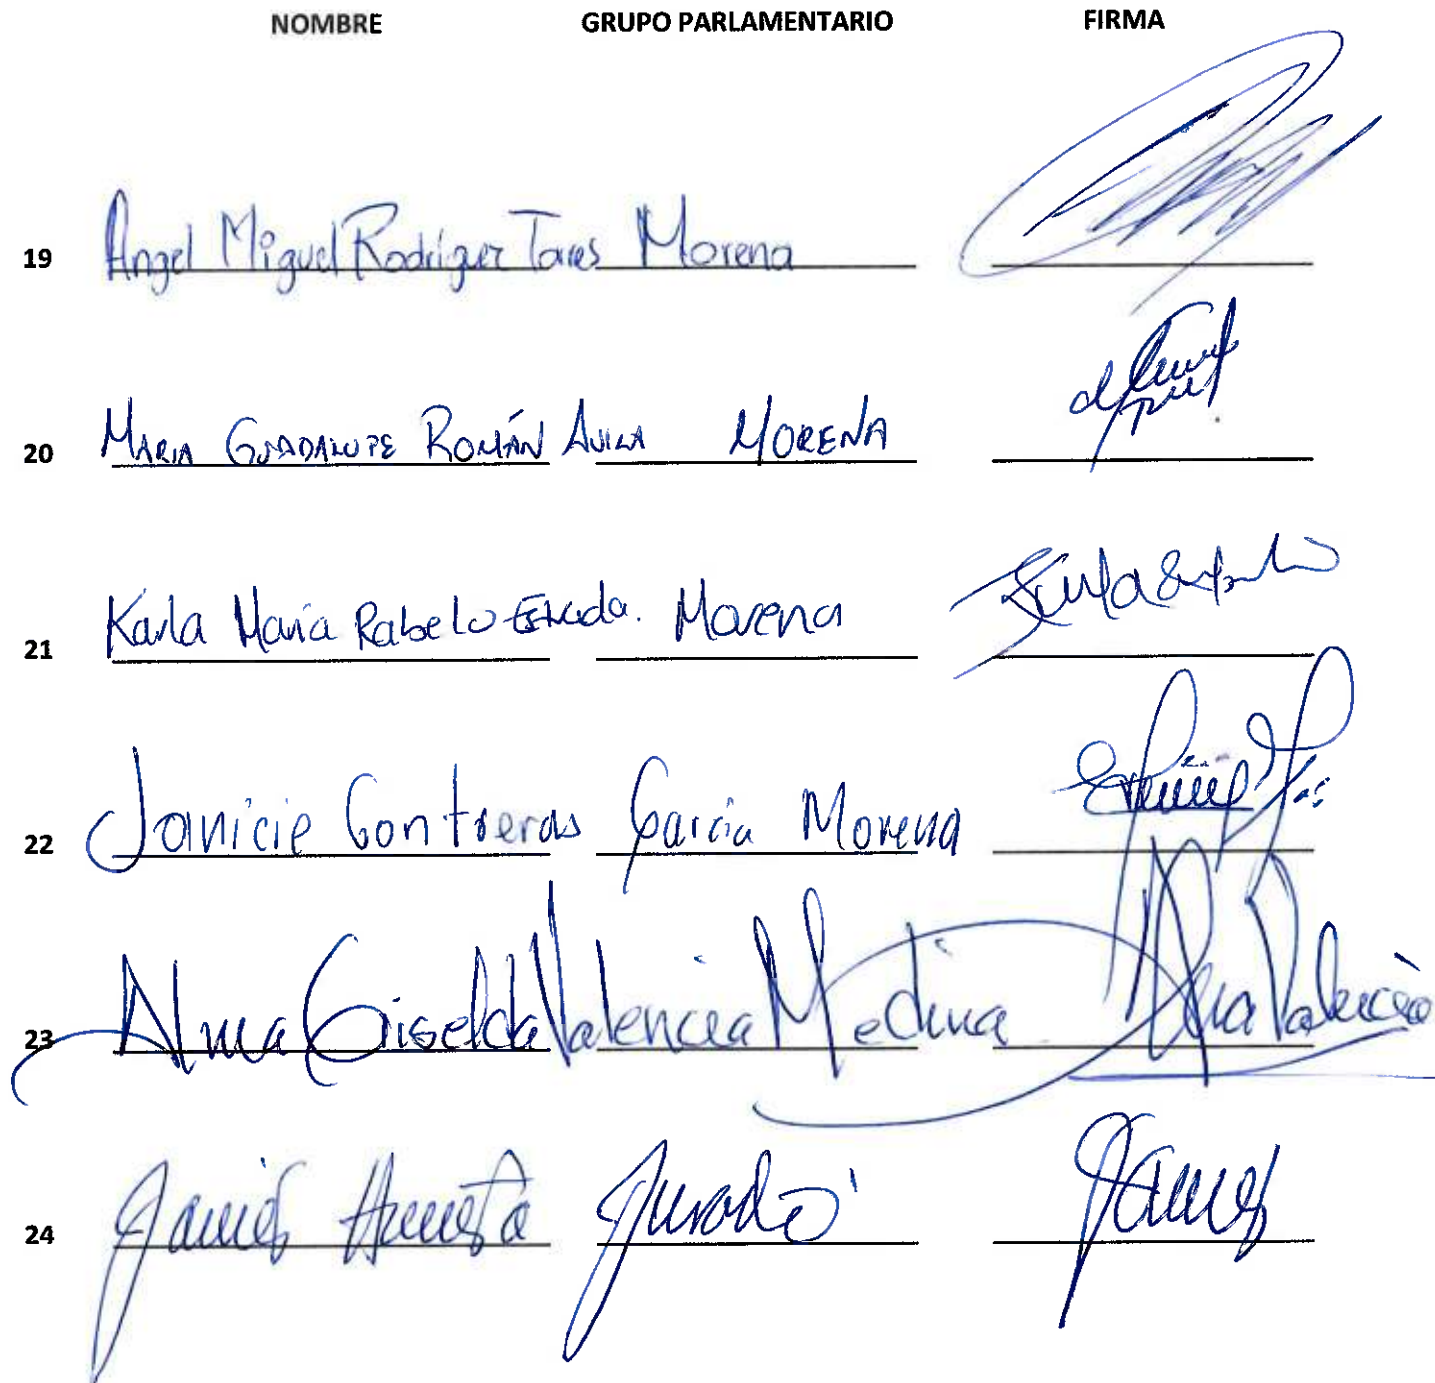 NOMBRE GRUPO PARLAMENTARIO FIRMA
19 Angel Miguel Rodríguez Torres Morena
20 MARIA GUADALUPE ROMÁN ÁVILA MORENA
21 Karla María Rabelo Estrada. Morena
22 Janicie Contreras García Morena
23 Alma Griselda Valencia Medina Alma Valencia
24 Javier Acosta Jurado